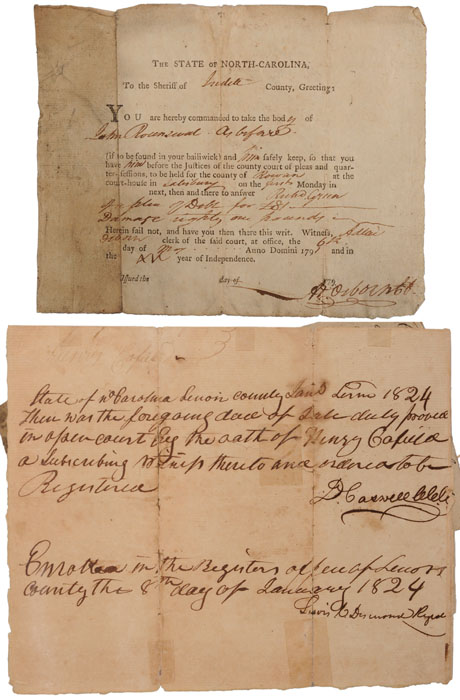 THE STATE OF NORTH-CAROLINA,
To the Sheriff of Iredell County, Greeting:
YOU are hereby commanded to take the body of
John
(if to be found in your bailiwick) and him safely keep, so that you
have him before the Justices of the county court of pleas and quar-
ter-sessions, to be held for the county of Rowan at the
court-house in Salisbury on the first Monday in
next, then and there to answer
plea of Debt for
Damage eighty one pounds
Herein fail not, and have you then there this writ. Witness,
clerk of the said court, at office, the 9th
day of Anno Domini 179 and in
the XV year of Independence.
Issued the day of
Osborn CC
State of No Carolina Lenoir county Term 1824
Then was the foregoing deed of Sale duly proved
in open court by the oath of Henry
a Subscribing Witness thereto and ordered to be
Registered
D Caswell Clk
Enrolled in the Registers office of Lenoir
county the 8th day of January 1824
Desmond